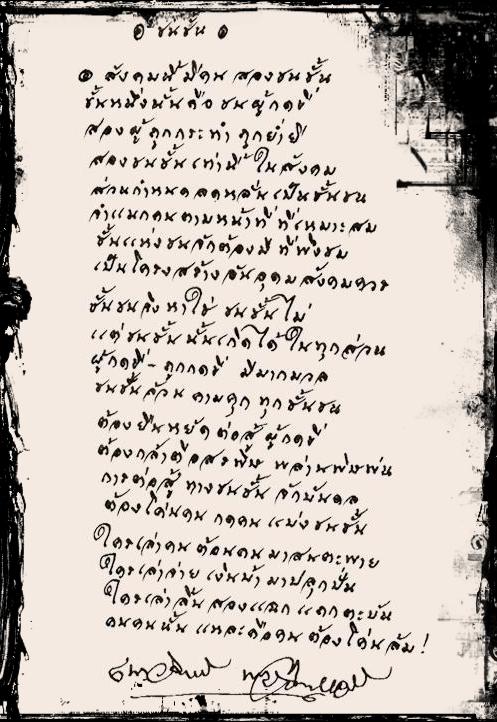 ๑ ชนชั้น ๑
๑ สังคมนี้ มีคน สองชนชั้น
ชั้นหนึ่งนั้นคือ ชนผู้กดขี่
สองผู้ถูกกระทำ ถูกย่ำยี
สองชนชั้นเท่านี้ ในสังคม
ส่วนกำหนดลดหลั่นเป็นชั้นชน
จำแนกคนตามหน้าที่ ที่เหมาะสม
ชั้นแห่งชนจักต้องมี ที่พึงชม
เป็นโครงสร้างอันอุดม สังคมควร
ชั้นชนจึงหาใช่ ชนชั้นไม่
แต่ชนชั้นนั้นเกิดได้ ในทุกส่วน
ผู้กดขี่ - ถูกกดขี่ มีมากมวล
ชนชั้นล้วน คามคุก ทุกชั้นชน
ต้องยืนหยัด ต่อสู้ ผู้กดขี่
ต้องกล้าตี พล่านพิษพ่น
การต่อสู้ ทางชนชั้น จักบันดล
ต้องโค่นคน กดคน แบ่งชนชั้น
ใครเล่าคน ต้อนคน มาสนตะพาย
ใครเล่าจ่าย เงินน้ำ มาปลุกปั่น
ใครเล่าลิ้น สองแฉก แดกตะบัน
คนคนนั้น แหละคือคน ต้องโค่นล้ม!